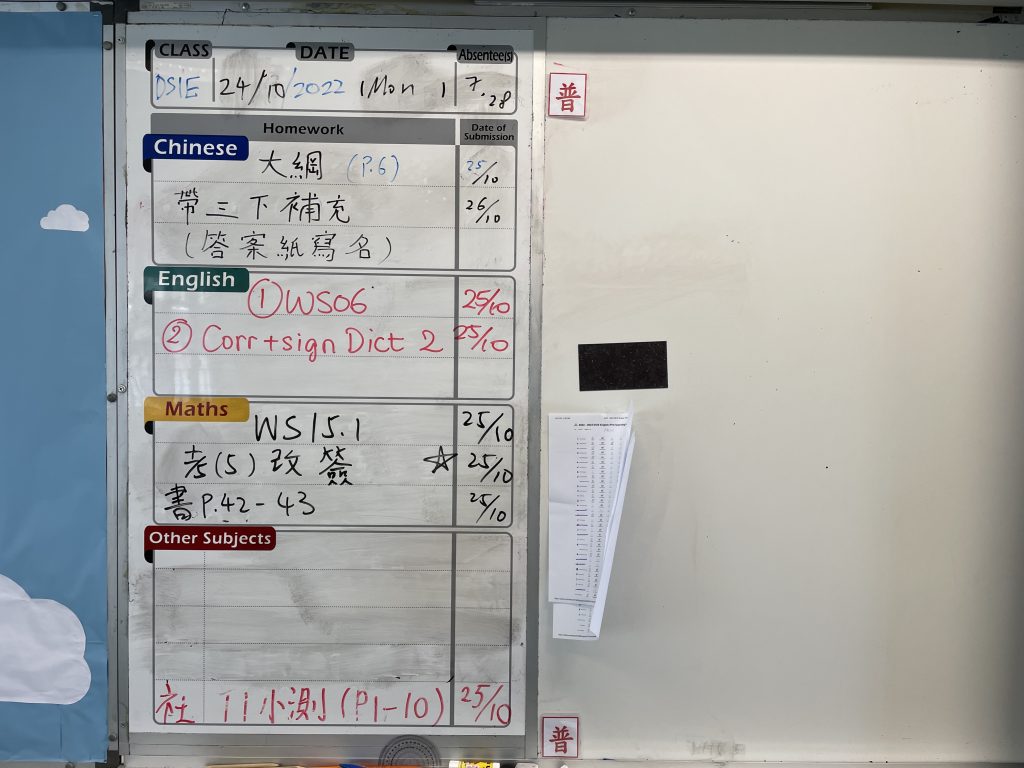 CLASS DATE Absentee(s)
D51E 24/10/2022 (Mon) 7.28
Homework Date of Submission
Chinese
大綱 (P.6) 25/10
帶三下補充 26/10
(答案紙寫名)
English
①WS06 25/10
② Corr+sign Dict 2 25/10
Maths
WS15.1 25/10
考(5)改簽 ☆ 25/10
書P.42-43 25/10
Other Subjects
社 T1小測(P1-10) 25/10
普
普